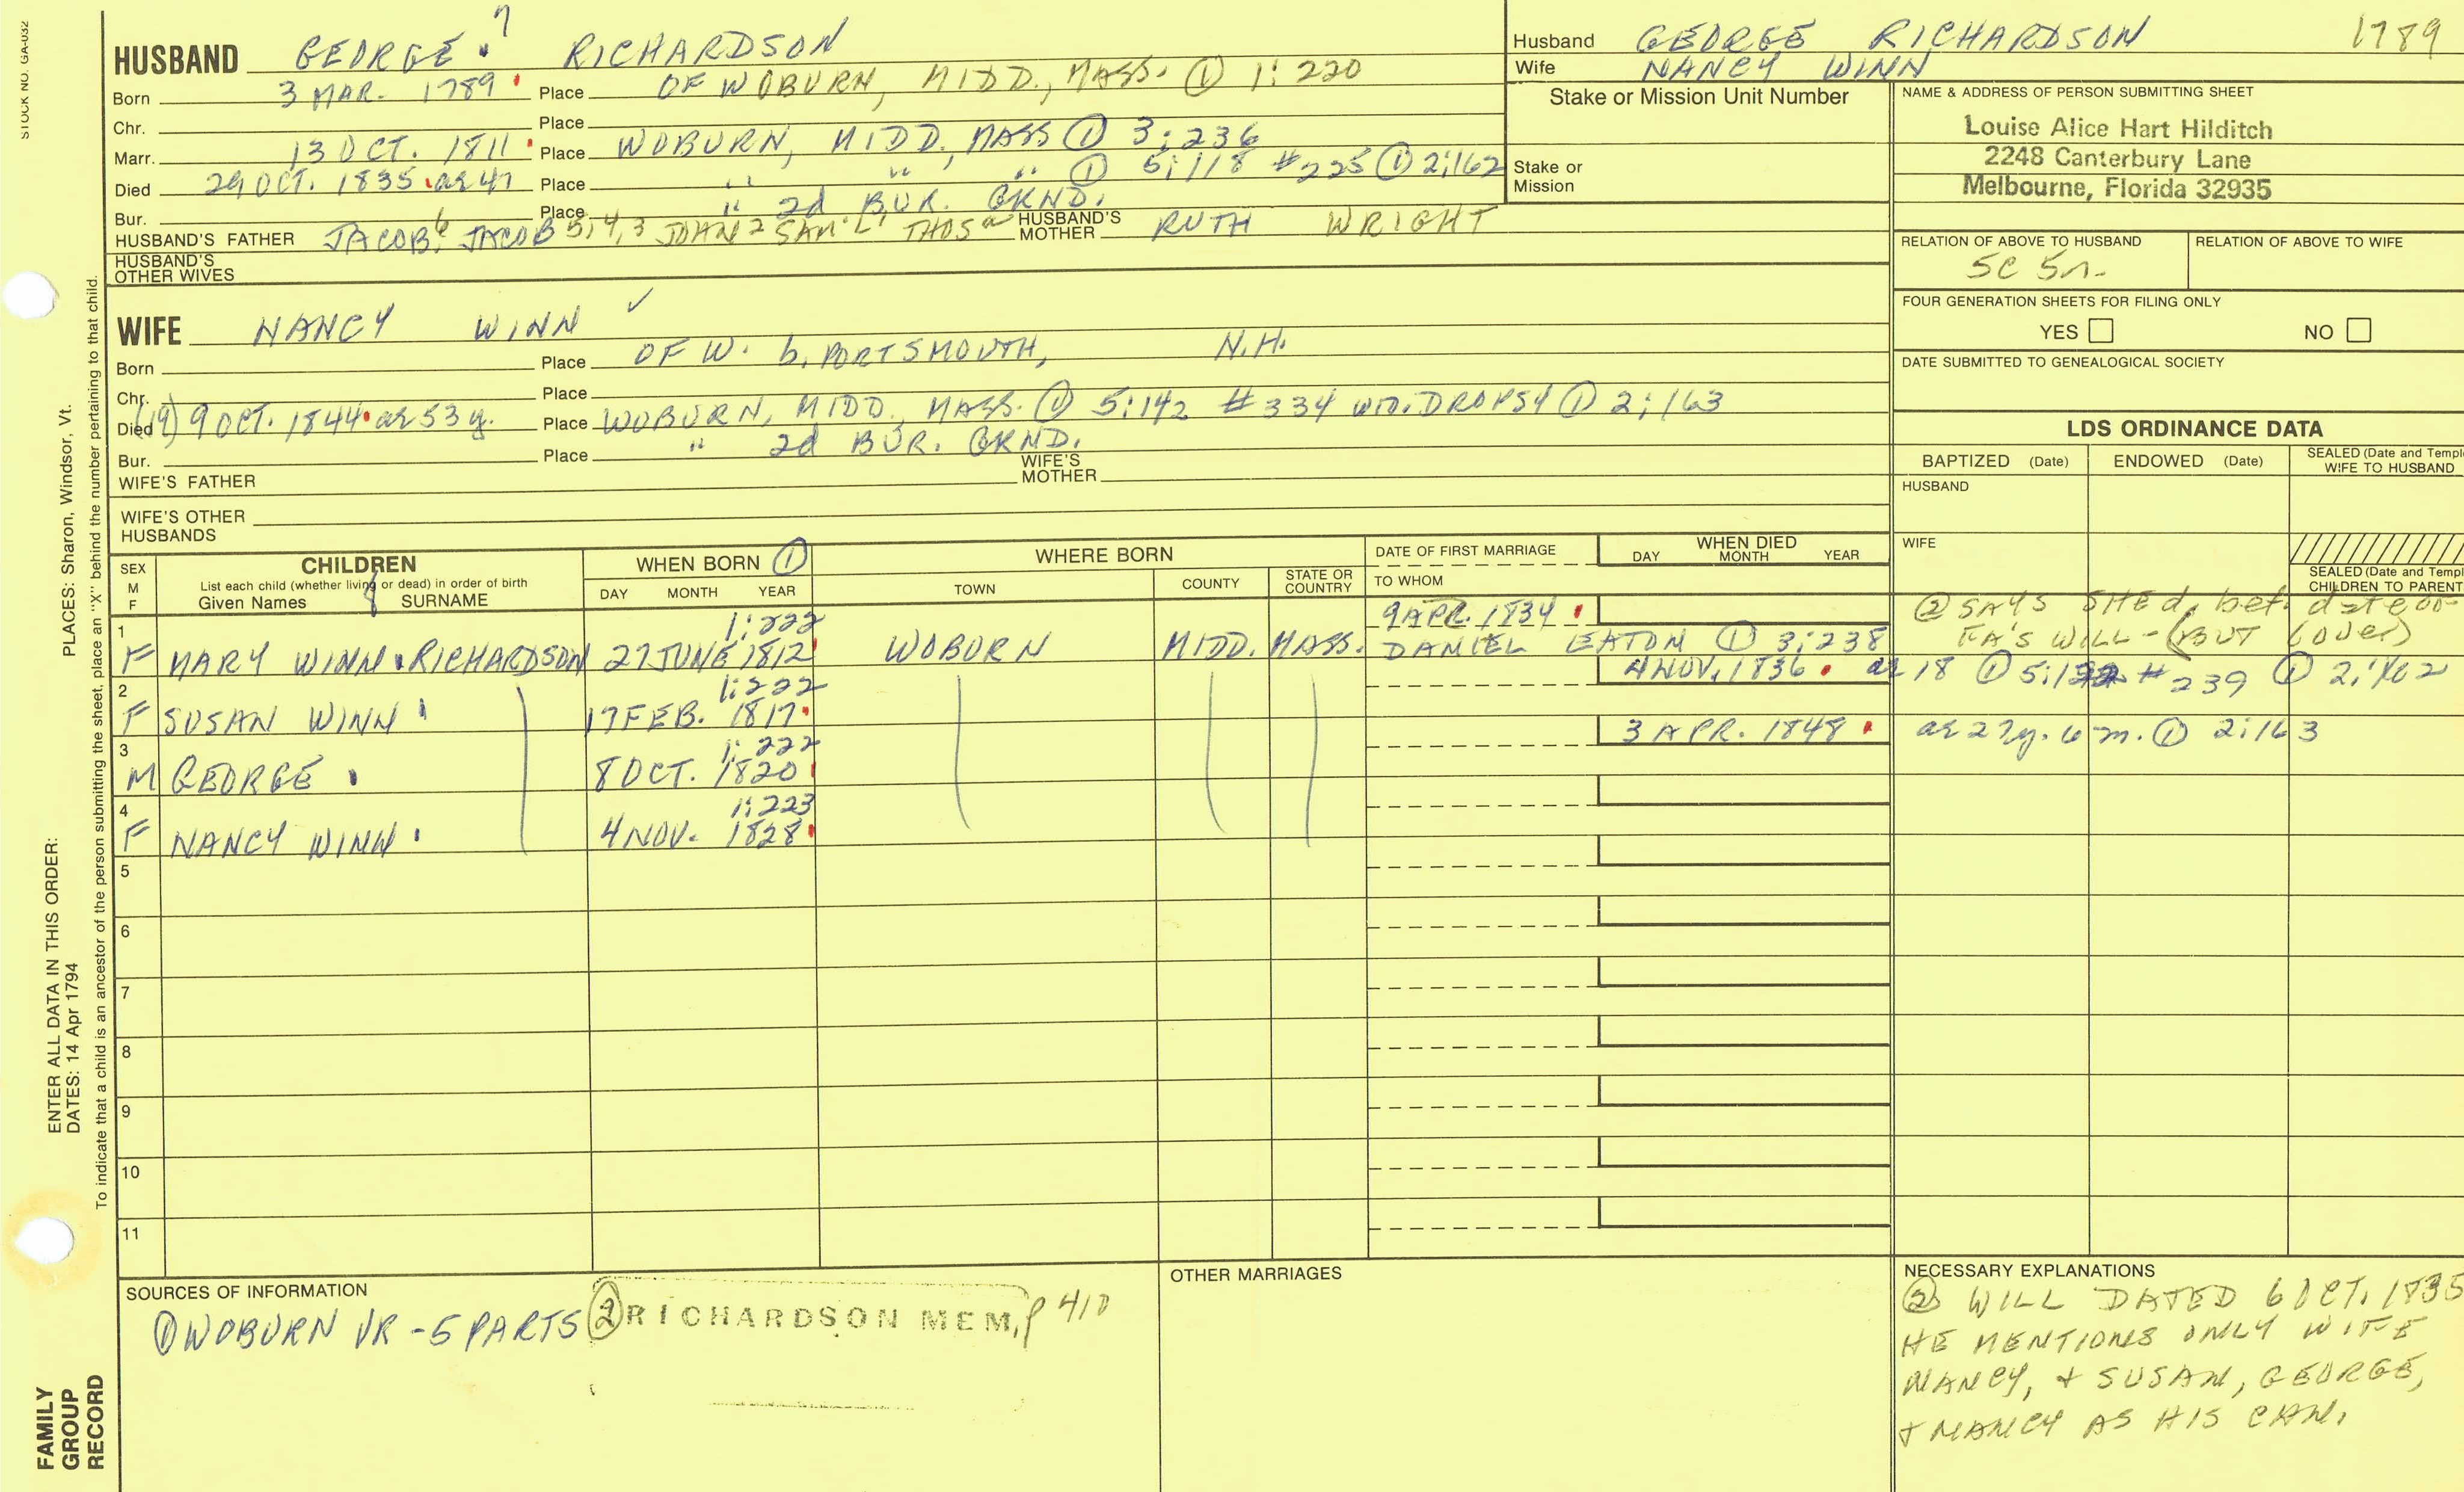 STOCK NO. GA-032
HUSBAND GEORGE 7 RICHARDSON
Born 3 MAR. 1789 Place OF WOBURN, MIDD., MASS. ① 1:220
Chr. Place
Marr. 13 OCT. 1811 Place WOBURN, MIDD., MASS ① 3:236
Died 29 OCT. 1835 ae 47 Place " " " ① 5:118 #225 ① 2:162
Bur. Place " 2d BUR. GRND.
HUSBAND'S FATHER JACOB 6 JACOB 5,4,3 JOHN 2 SAM'L 1 THOS a HUSBAND'S MOTHER RUTH WRIGHT
HUSBAND'S OTHER WIVES
WIFE NANCY WINN ✓
Born Place OF W. b. PORTSMOUTH, N.H.
Chr. Place
Died (19) 9 OCT. 1844 ae 53 y. Place WOBURN, MIDD. MASS. ① 5:142 #334 WID. DROPSY ① 2:163
Bur. Place " 2d BUR. GRND.
WIFE'S FATHER WIFE'S MOTHER
WIFE'S OTHER HUSBANDS
Husband GEORGE RICHARDSON 1789
Wife NANCY WINN
Stake or Mission Unit Number
Stake or Mission
NAME & ADDRESS OF PERSON SUBMITTING SHEET
Louise Alice Hart Hilditch
2248 Canterbury Lane
Melbourne, Florida 32935
RELATION OF ABOVE TO HUSBAND RELATION OF ABOVE TO WIFE
5C 5r.
FOUR GENERATION SHEETS FOR FILING ONLY
YES NO
DATE SUBMITTED TO GENEALOGICAL SOCIETY
LDS ORDINANCE DATA
BAPTIZED (Date) ENDOWED (Date) SEALED (Date and Templ WIFE TO HUSBAND
HUSBAND
WIFE
SEALED (Date and Templ CHILDREN TO PARENT
SEX M F
CHILDREN
List each child (whether living or dead) in order of birth
Given Names SURNAME
WHEN BORN ①
DAY MONTH YEAR
WHERE BORN
TOWN COUNTY STATE OR COUNTRY
DATE OF FIRST MARRIAGE
TO WHOM
WHEN DIED
DAY MONTH YEAR
1 1:222 9 APR. 1834 ② SAYS SHE d. bef. date on
F MARY WINN RICHARDSON 27 JUNE 1812 WOBURN MIDD. MASS. DANIEL EATON ① 3:238 FA'S WILL - (BUT (over)
2 1:222 4 NOV. 1836 ae 18 ① #239 ① 2:162
F SUSAN WINN 17 FEB. 1817
3 1:222 3 APR. 1848 ae 27y. 6 m. ① 2:163
M GEORGE 8 OCT. 1820
4 1:223
F NANCY WINN 4 NOV. 1828
5
6
7
8
9
10
11
SOURCES OF INFORMATION
① WOBURN VR - 5 PARTS ② RICHARDSON MEM, p 410
OTHER MARRIAGES
NECESSARY EXPLANATIONS
② WILL DATED 6 OCT. 1835
HE MENTIONS ONLY WIFE
NANCY, + SUSAN, GEORGE,
+ NANCY AS HIS CHN.
ENTER ALL DATA IN THIS ORDER:
DATES: 14 Apr 1794
PLACES: Sharon, Windsor, Vt.
To indicate that a child is an ancestor of the person submitting the sheet, place an "X" behind the number pertaining to that child.
FAMILY
GROUP
RECORD